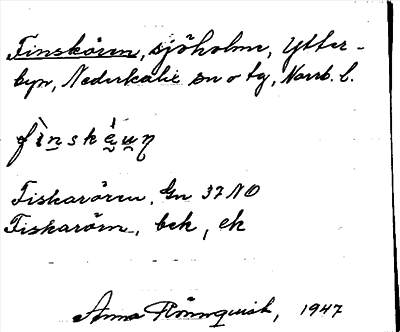 Finskören, sjöholme, Ytter-
byn, Nederkalix sn o tg, Norrb. l.
fìnskèun
Fiskarören, Gn 37 NO
Fiskarörn, bek, ek
Anna Rönnquist, 1947